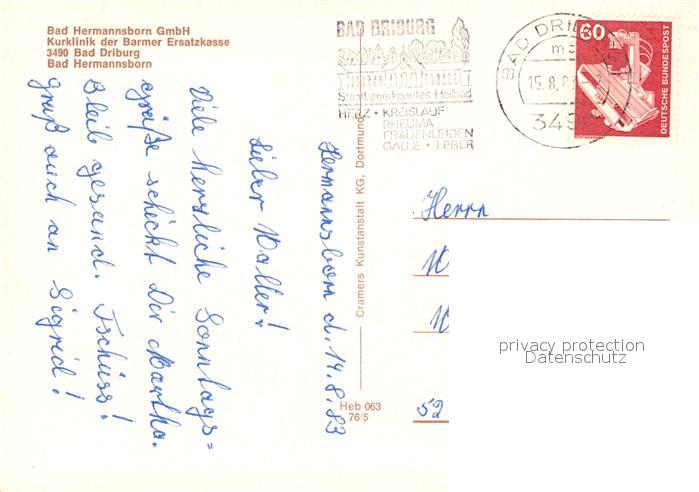 Bad Hermannsborn GmbH
Kurklinik der Barmer Ersatzkasse
3490 Bad Driburg
Bad Hermannsborn
BAD DRIBURG
Staatl. anerkanntes Heilbad
HERZ • KREISLAUF
RHEUMA
FRAUENLEIDEN
GALLE • LEBER
BAD DRIBURG
mc
15.8.83
349
60
DEUTSCHE BUNDESPOST
Hermannsborn d. 14.8.83
Lieber Walter!
Viele herzliche Sonntags=
grüße schickt Dir Martha.
Bleib gesund. Tschüss!
gruß auch an Sigrid!
Cramers Kunstanstalt KG, Dortmund
Heb 063
76/5
Herrn
W
W
52
privacy protection
Datenschutz